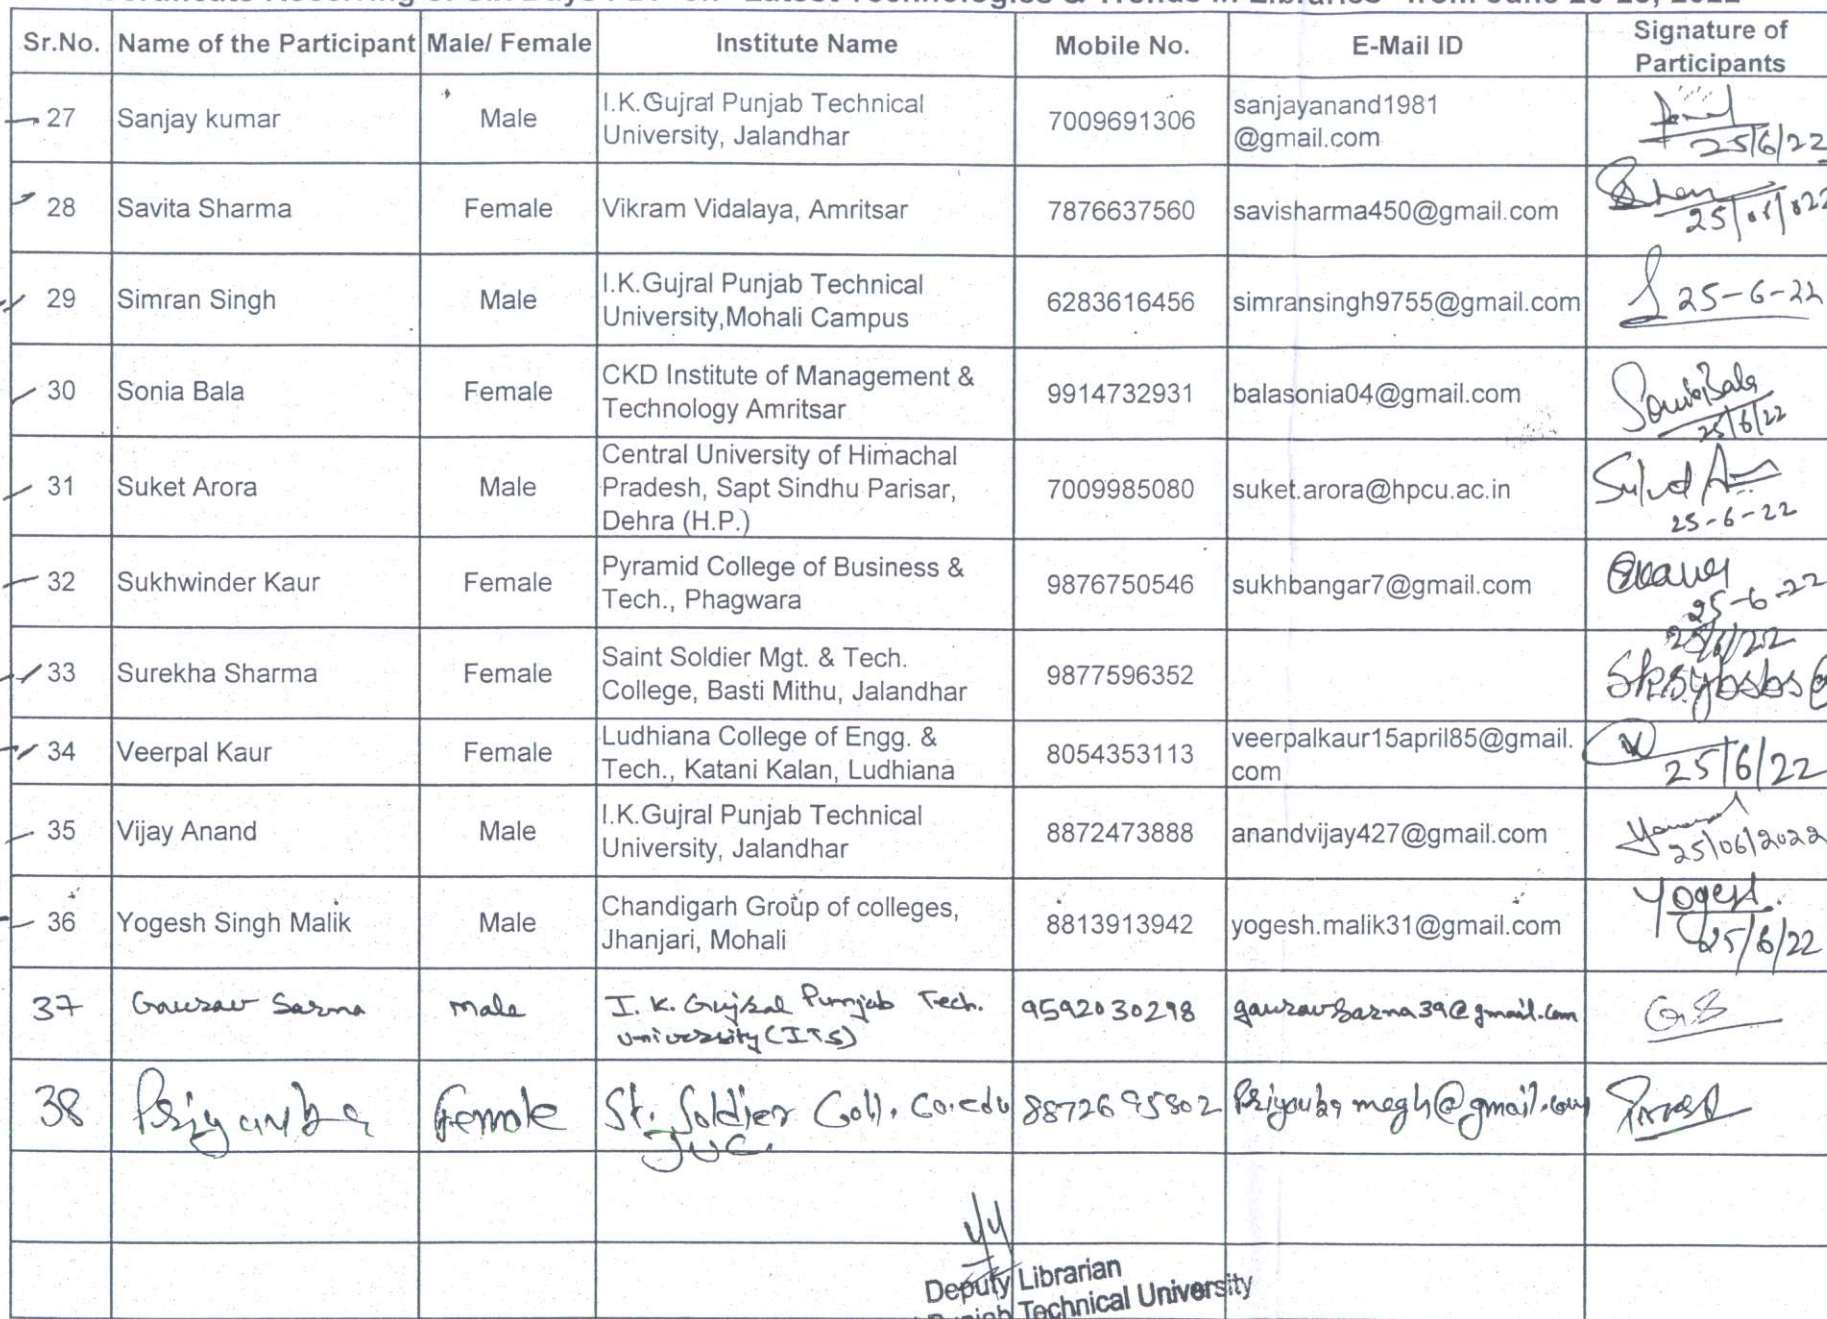 Certificate Receiving of Six Days FDP on "Latest Technologies & Trends in Libraries" from June 20-25, 2022
Sr.No. Name of the Participant Male/ Female Institute Name Mobile No. E-Mail ID Signature of
Participants
27 Sanjay kumar Male I.K.Gujral Punjab Technical
University, Jalandhar 7009691306 sanjayanand1981
@gmail.com
25/6/22
28 Savita Sharma Female Vikram Vidalaya, Amritsar 7876637560 savisharma450@gmail.com
29 Simran Singh Male I.K.Gujral Punjab Technical
University,Mohali Campus 6283616456 simransingh9755@gmail.com 25-6-22
30 Sonia Bala Female CKD Institute of Management &
Technology Amritsar 9914732931 balasonia04@gmail.com Sonia Bala
25/6/22
31 Suket Arora Male Central University of Himachal
Pradesh, Sapt Sindhu Parisar,
Dehra (H.P.) 7009985080 suket.arora@hpcu.ac.in Suket
25-6-22
32 Sukhwinder Kaur Female Pyramid College of Business &
Tech., Phagwara 9876750546 sukhbangar7@gmail.com
25-6-22
33 Surekha Sharma Female Saint Soldier Mgt. & Tech.
College, Basti Mithu, Jalandhar 9877596352 25/6/22
34 Veerpal Kaur Female Ludhiana College of Engg. &
Tech., Katani Kalan, Ludhiana 8054353113 veerpalkaur15april85@gmail.
com 25/6/22
35 Vijay Anand Male I.K.Gujral Punjab Technical
University, Jalandhar 8872473888 anandvijay427@gmail.com
25/06/2022
36 Yogesh Singh Malik Male Chandigarh Group of colleges,
Jhanjari, Mohali 8813913942 yogesh.malik31@gmail.com Yogesh
25/6/22
37 Gaurav Sarma male I. K. Gujral Punjab Tech.
University (ITS) 9592030298 gauravsarma39@gmail.com G.S
38 Priyanka female St. Soldier Coll. Co.edu
JUC. 8872695802 Priyanka megh@gmail.com
Deputy Librarian
Punjab Technical University